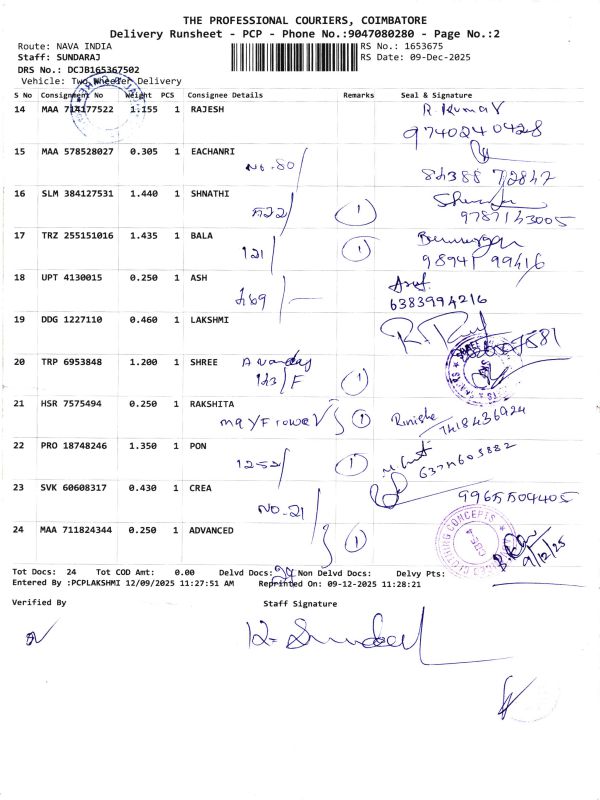 THE PROFESSIONAL COURIERS, COIMBATORE
Delivery Runsheet - PCP - Phone No.:9047080280 - Page No.:2
Route: NAVA INDIA
RS No.: 1653675
Staff: SUNDARAJ
RS Date: 09-Dec-2025
DRS No.: DCJB165367502
Vehicle: Two Wheeler Delivery
S No Consignment No Weight PCS Consignee Details Remarks Seal & Signature
14 MAA 714177522 1.155 1 RAJESH R. Kumar
9740240428
15 MAA 578528027 0.305 1 EACHANRI
No. 80/
84388 72847
16 SLM 384127531 1.440 1 SHNATHI
522/ 1 9787143005
17 TRZ 255151016 1.435 1 BALA
121/ 1 98941 99416
18 UPT 4130015 0.250 1 ASH
269/ 6383994216
19 DDG 1227110 0.460 1 LAKSHMI
20 TRP 6953848 1.200 1 SHREE
123/F 1
21 HSR 7575494 0.250 1 RAKSHITA
mayFlower 1 7418436924
22 PRO 18748246 1.350 1 PON
1252/ 1 6374603882
23 SVK 60608317 0.430 1 CREA
NO.21 9965504405
24 MAA 711824344 0.250 1 ADVANCED
1 CLOTHING CONCEPTS
9/12/25
Tot Docs: 24 Tot COD Amt: 0.00 Delvd Docs: 24 Non Delvd Docs: Delvy Pts:
Entered By :PCPLAKSHMI 12/09/2025 11:27:51 AM Reprinted On: 09-12-2025 11:28:21
Verified By Staff Signature